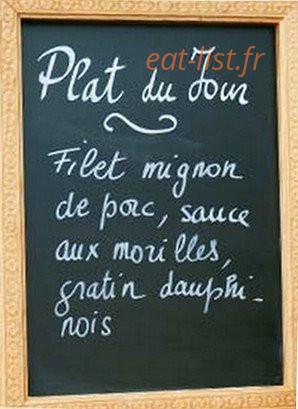 eat-list.fr
Plat du Jour
Filet mignon
de porc, sauce
aux morilles,
gratin dauphi-
nois